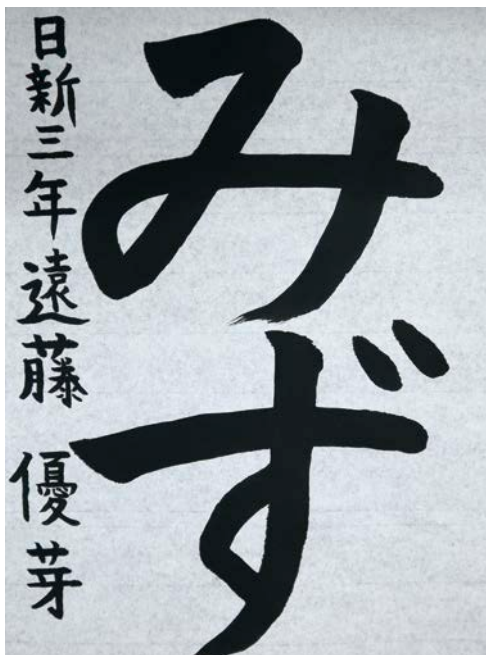 みず
日新三年遠藤 優芽